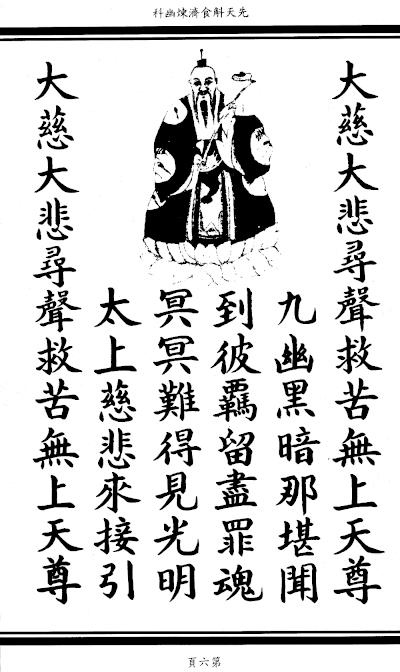 先天斛食濟煉幽科
大慈大悲尋聲救苦無上天尊
九幽黑暗那堪聞
到彼羈留盡罪魂
冥冥難得見光明
太上慈悲來接引
大慈大悲尋聲救苦無上天尊
第六頁